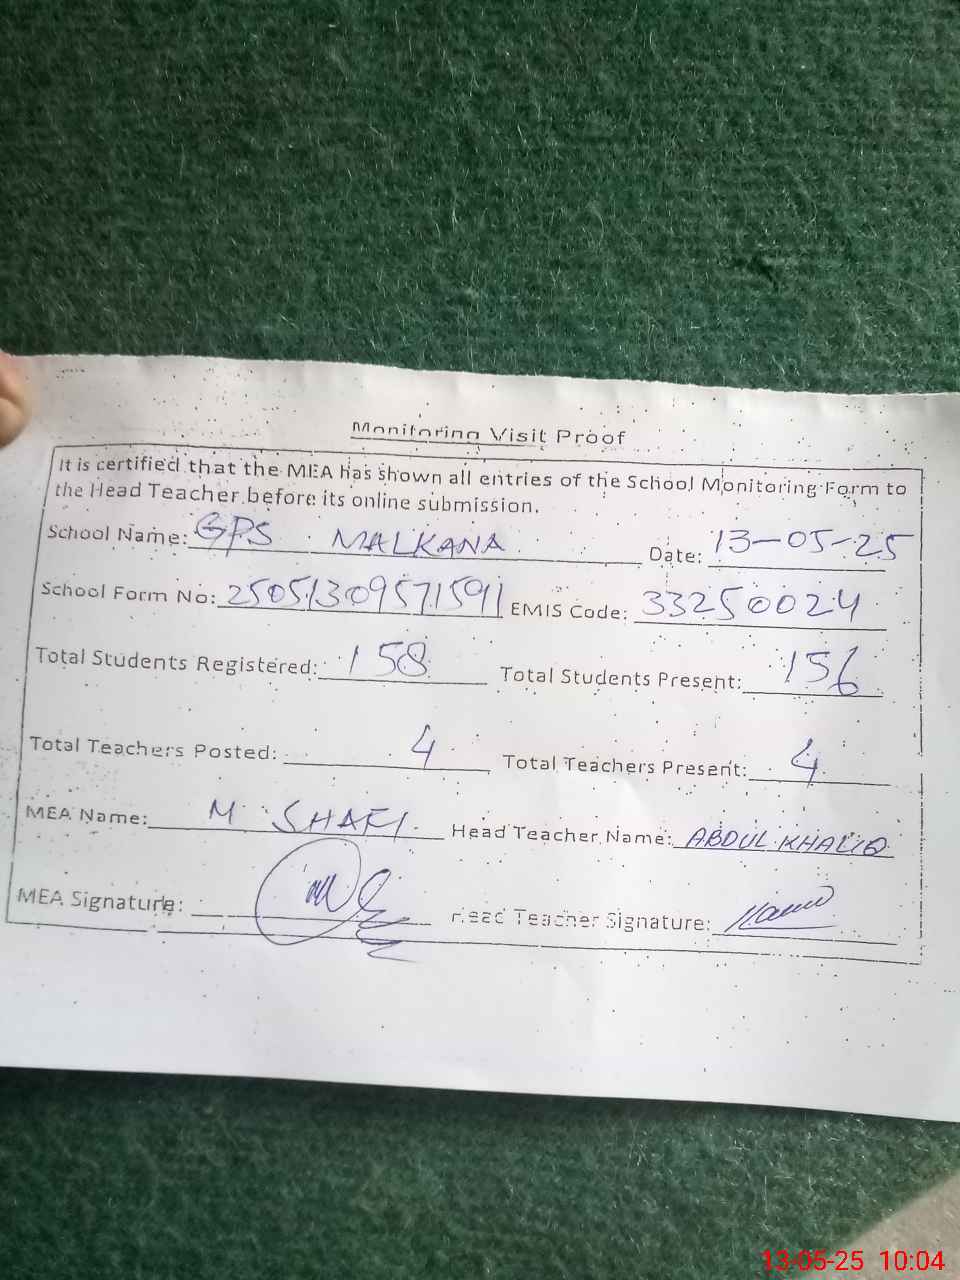 Monitoring Visit Proof
It is certified that the MEA has shown all entries of the School Monitoring Form to
the Head Teacher before its online submission.
School Name: GPS MALKANA Date: 13-05-25
School Form No: 25051309571591 EMIS Code: 33250024
Total Students Registered: 158 Total Students Present: 156
Total Teachers Posted: 4 Total Teachers Present: 4
MEA Name: M SHAFI Head Teacher Name: ABDUL KHALIQ
MEA Signature: Head Teacher Signature:
13-05-25 10:04